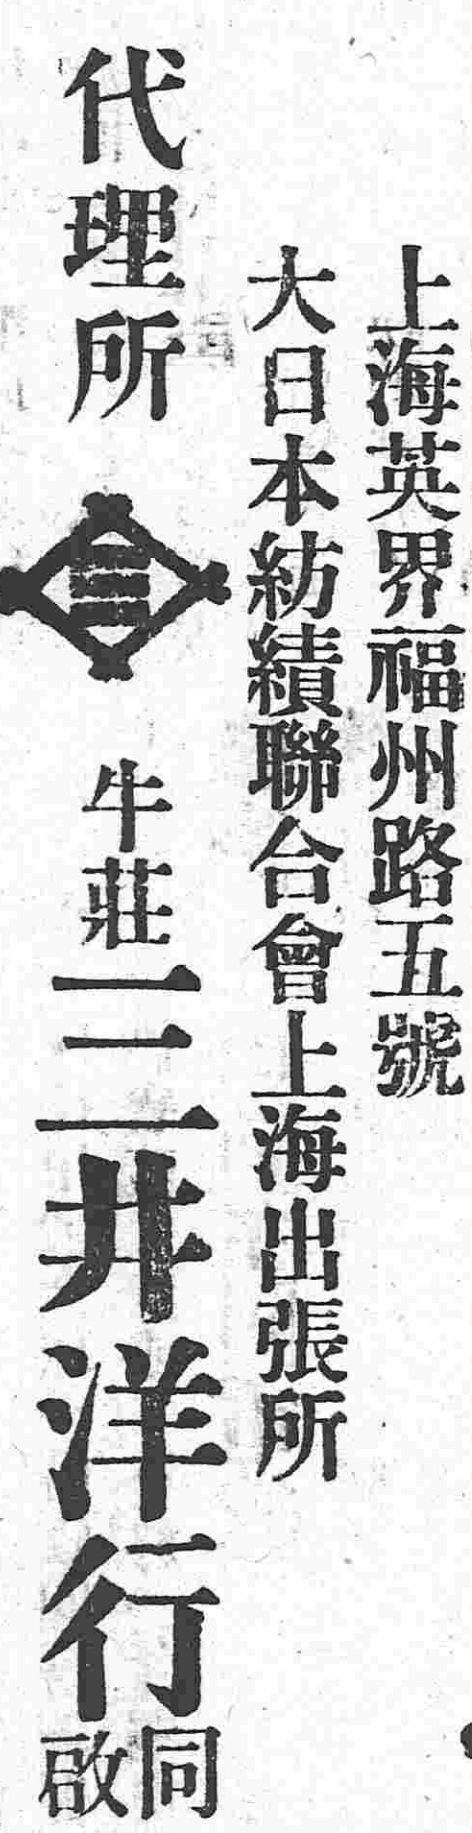 上海英界福州路五號
大日本紡績聯合會上海出張所
代理所 三 牛莊三井洋行同啟